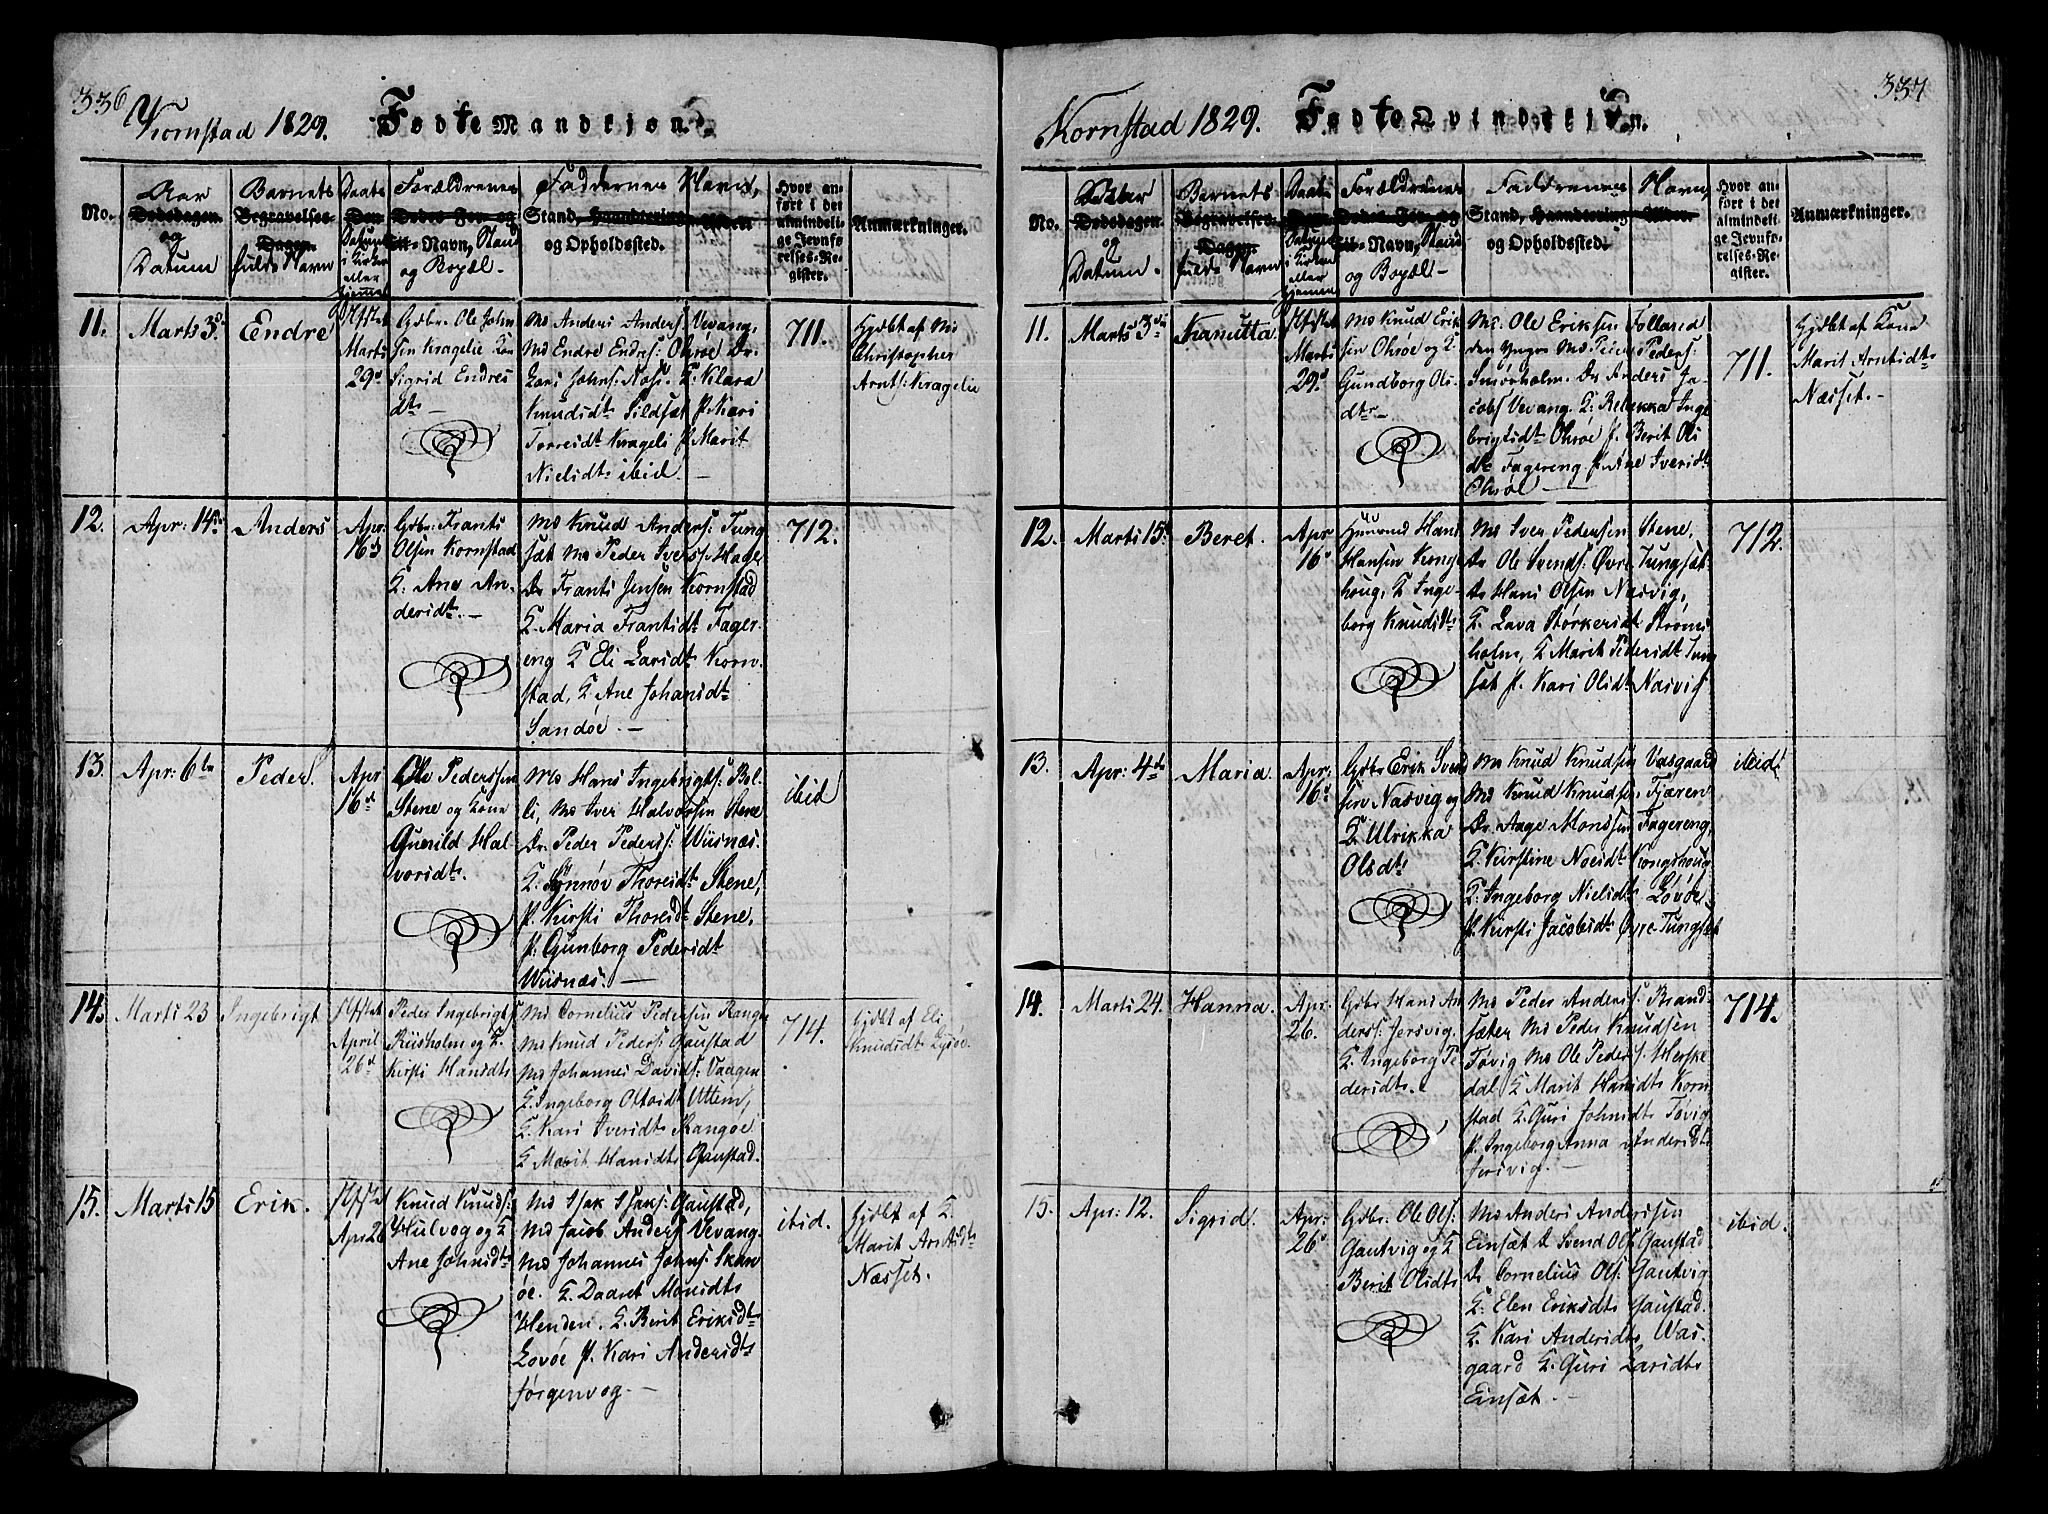 336
Kornstad 1829. Fødte Mandkjøn.
No.
Aar
Dødsdagen.
og
Datum
Barnets
Begravelses-
Dagen.
fulde Navn
Daabs
Den
Datum
i Kirken
eller
hjemme
Forældrenes
Dødes For- og
Til-Navn, Stand
og Bopæl.
Faddernes Navn,
Stand, Haandtering
og Opholdssted.
Alder.
Hvor an-
ført i det
almindeli-
ge Jevnfø-
relses-Re-
gister.
Anmærkninger.
11.
Marts 3
Endre
Marts
29
Gdbr. Ole John
sen Kragelie
Sigrid Endres
dt
Mo Anders Anders: Vevang,
Mo Endre Endres: Ohrøe Dr.
Lars Johns: Nøs. K. Klara
Knudsdt Sildset P. Kari
Torresdt Krageli P. Marit
Nielsdt ibid
711.
Hjdbt af Mo
Christopher
Arnts: Kragelie
12.
Apr: 14
Anders
Apr.
16
Gdbr. Frants
Olsen Kornstad
K. Ane An-
dersdt.
Mo Knud Anders: Tung
sæt Mo Peder Ivers: Hager
Dr Frants Jensen Kornstad
K. Maria Frantsdt Fager-
eng K Eli Larsdt Korn-
stad, K Ane Johansdt
Sandøe.
712.
13.
Apr: 6
Peder
Apr
16
Ole Pedersen
Stene og Kone
Gunild Hal-
vorsdt.
Mo Hans Ingebrigts: Bol-
li, Mo Iver Halvorsen Stene
Dr. Peder Peders: Wiisnæs.
K: Synnøv Thoresdt Stene,
P. Kirsti Thoresdt Stene,
P. Gunborg Pedersdt
Wiisnæs.
ibid
14.
Marts 23
Ingebrigt
April
26
Peder Ingebrigts
Riisholm og K.
Kirsti Hansdt
Mo Cornelius Pedersen Rangøe
Mo Knud Peders: Gaustad
Mo Johannes Davids: Vaagen
K. Ingeborg Olsdt Uttem,
K. Kari Iversdt Rangøe
K Marit Hansdt Gaustad.
714.
Hjdbt af Eli
Knudsdt Lysøe.
15.
Marts 15
Erik.
Apr 26
Knud Knuds:
Hulvog og K
Ane Johnsdt
Mo Isak Isaks: Gaustad,
Mo Jacob Anders Vevang
Mo Johannes Johns: Skan
øe. K. Daaret Monsdt
Henden. K. Berit Eriksdt
Lovøe P. Kari Andersdt
Jørgenvog
ibid.
Hjdbt af K.
Marit Arntsdt
Næsset.
337
Kornstad 1829. Fødte Qvindekjøn.
No.
Dødsdagen.
og
Datum.
Barnets
Begravelses-
Dagen.
fulde Navn
Daabs
Den
Datum
i Kirken
eller
hjemme
Forældrenes
Dødes For- og
Til-Navn, Stand
og Bopæl
Faddernes Navn,
Stand, Haandtering
og Opholdssted.
Alder.
Hvor an-
ført i det
almindeli-
ge Jevnfø-
relses-Re-
gister.
Anmærkninger.
11.
Marts 3
Kanutta
Marts
29
Mo Knud Erik
sen Ohrøe og K
Gundborg Ols-
dt
Mo. Ole Eriksen Folland
den Yngre Mo Peder Peders:
Smørholm. Dr Anders Ja-
cobs Vevang. K: Rebekka Inge
brigtsdt Ohrøe P. Berit Ols
dt Fagereng P. Ane Iversdt
Ohrøe
711.
Hjdbt af Kone
Marit Arntsdt
Næsset.
12.
Marts 15
Beret.
Apr
16
Huusmd Hans
Hansen Kongs
houg, K Inge-
borg Knudsdt
Mo Iver Pedersen Stene,
Dr Ole Svends: Øvre Tungsæt
Dr Hans Olsen Nasvig,
K. Lava Størkersdt Strøms
holm, K Marit Pedersdt Tung
sæt P. Kari Olsdt Nasvig
712.
13.
Apr: 4
Maria.
Apr.
16
Gdbr Erik Svend
sen Nasvig og
K Ulrikka
Olsdt
Mo Knud Knudsen Vasgaard
Mo Knud Knudsen Fjæren
Dr. Aage Monsen Fagereng,
K Kirstine Noesdt Kongshoug
K: Ingeborg Nielsdt Lovøe
P. Kirsti Jacobsdt Øvre-Tungsæt
ibid
14.
Marts 24.
Hanna.
Apr.
26.
Gdbr Hans An
derss: Jersvig.
K. Ingeborg Pe-
dersdt.
Mo Peder Anders: Brand-
sæter Mo Peder Knudsen
Tøvig Mo Ole Peders: Herske
dal K Marit Hansdt Korn
stad K. Guri Johnsdt Tøvig
P. Ingeborg Anna Andersdt
Jersvig.
714.
15.
Apr: 12.
Sigrid
Apr:
26
Gdbr: Ole Ols:
Gautvig og K
Berit Olsdt
Mo Anders Andersen
Einsæt D Svend Ols Gaustad
Dr Cornelius Ols: Gautvig
K. Elen Eriksdt Gaustad.
K. Kari Andersdt Was-
gaard K. Guri Larsdt
Einsæt.
ibid.